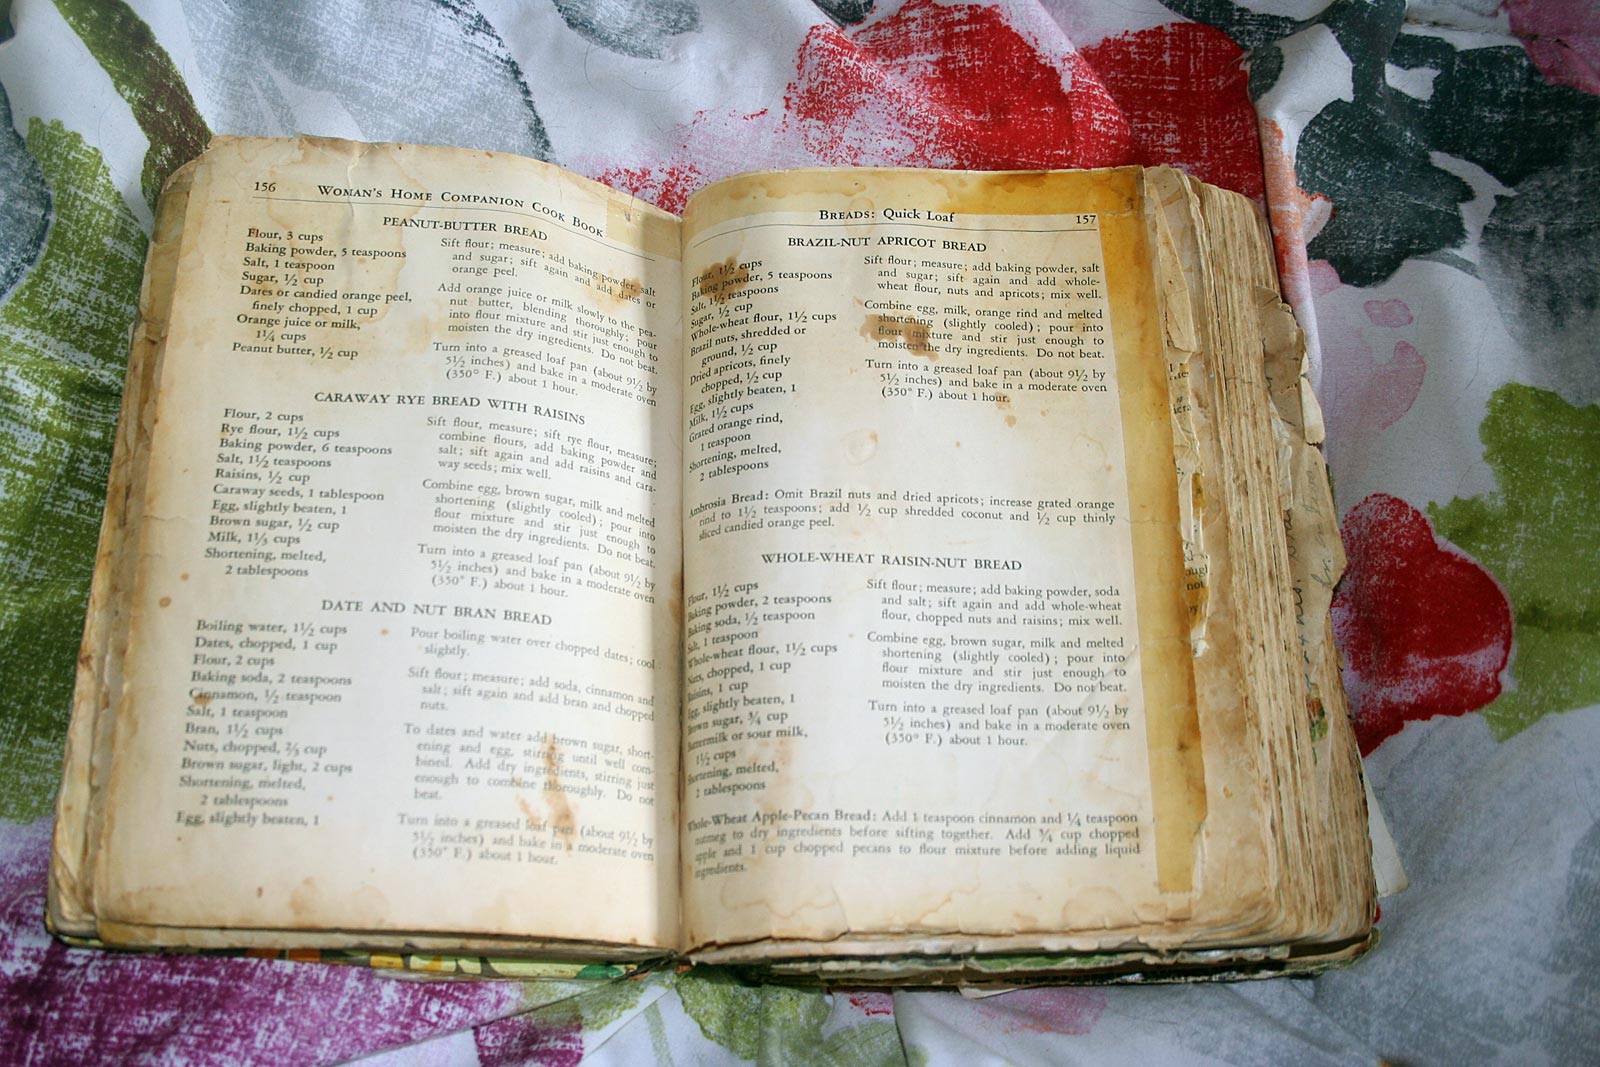 156 Woman's Home Companion Cook Book
PEANUT-BUTTER BREAD
Flour, 3 cups
Baking powder, 5 teaspoons
Salt, 1 teaspoon
Sugar, ½ cup
Dates or candied orange peel,
finely chopped, 1 cup
Orange juice or milk,
1¼ cups
Peanut butter, ½ cup
Sift flour; measure; add baking powder, salt
and sugar; sift again and add dates or
orange peel.
Add orange juice or milk slowly to the pea-
nut butter, blending thoroughly; pour
into flour mixture and stir just enough to
moisten the dry ingredients. Do not beat.
Turn into a greased loaf pan (about 9½ by
5½ inches) and bake in a moderate oven
(350° F.) about 1 hour.
CARAWAY RYE BREAD WITH RAISINS
Flour, 2 cups
Rye flour, 1½ cups
Baking powder, 6 teaspoons
Salt, 1½ teaspoons
Raisins, ½ cup
Caraway seeds, 1 tablespoon
Egg, slightly beaten, 1
Brown sugar, ½ cup
Milk, 1⅓ cups
Shortening, melted,
2 tablespoons
Sift flour, measure; sift rye flour, measure;
combine flours, add baking powder and
salt; sift again and add raisins and cara-
way seeds; mix well.
Combine egg, brown sugar, milk and melted
shortening (slightly cooled); pour into
flour mixture and stir just enough to
moisten the dry ingredients. Do not beat.
Turn into a greased loaf pan (about 9½ by
5½ inches) and bake in a moderate oven
(350° F.) about 1 hour.
DATE AND NUT BRAN BREAD
Boiling water, 1½ cups
Dates, chopped, 1 cup
Flour, 2 cups
Baking soda, 2 teaspoons
Cinnamon, ½ teaspoon
Salt, 1 teaspoon
Bran, 1½ cups
Nuts, chopped, ⅔ cup
Brown sugar, light, 2 cups
Shortening, melted,
2 tablespoons
Egg, slightly beaten, 1
Pour boiling water over chopped dates; cool
slightly.
Sift flour; measure; add soda, cinnamon and
salt; sift again and add bran and chopped
nuts.
To dates and water add brown sugar, short-
ening and egg, stirring until well com-
bined. Add dry ingredients, stirring just
enough to combine thoroughly. Do not
beat.
Turn into a greased loaf pan (about 9½ by
5½ inches) and bake in a moderate oven
(350° F.) about 1 hour.
Breads: Quick Loaf 157
BRAZIL-NUT APRICOT BREAD
Flour, 1½ cups
Baking powder, 5 teaspoons
Salt, 1½ teaspoons
Sugar, ½ cup
Whole-wheat flour, 1½ cups
Brazil nuts, shredded or
ground, ½ cup
Dried apricots, finely
chopped, ½ cup
Egg, slightly beaten, 1
Milk, 1½ cups
Grated orange rind,
1 teaspoon
Shortening, melted,
2 tablespoons
Sift flour; measure; add baking powder, salt
and sugar; sift again and add whole-
wheat flour, nuts and apricots; mix well.
Combine egg, milk, orange rind and melted
shortening (slightly cooled); pour into
flour mixture and stir just enough to
moisten the dry ingredients. Do not beat.
Turn into a greased loaf pan (about 9½ by
5½ inches) and bake in a moderate oven
(350° F.) about 1 hour.
Ambrosia Bread: Omit Brazil nuts and dried apricots; increase grated orange
rind to 1½ teaspoons; add ½ cup shredded coconut and ½ cup thinly
sliced candied orange peel.
WHOLE-WHEAT RAISIN-NUT BREAD
Flour, 1½ cups
Baking powder, 2 teaspoons
Baking soda, ½ teaspoon
Salt, 1 teaspoon
Whole-wheat flour, 1½ cups
Nuts, chopped, 1 cup
Raisins, 1 cup
Egg, slightly beaten, 1
Brown sugar, ¾ cup
Buttermilk or sour milk,
1½ cups
Shortening, melted,
2 tablespoons
Sift flour; measure; add baking powder, soda
and salt; sift again and add whole-wheat
flour, chopped nuts and raisins; mix well.
Combine egg, brown sugar, milk and melted
shortening (slightly cooled); pour into
flour mixture and stir just enough to
moisten the dry ingredients. Do not beat.
Turn into a greased loaf pan (about 9½ by
5½ inches) and bake in a moderate oven
(350° F.) about 1 hour.
Whole-Wheat Apple-Pecan Bread: Add 1 teaspoon cinnamon and ¼ teaspoon
nutmeg to dry ingredients before sifting together. Add ¾ cup chopped
apple and 1 cup chopped pecans to flour mixture before adding liquid
ingredients.